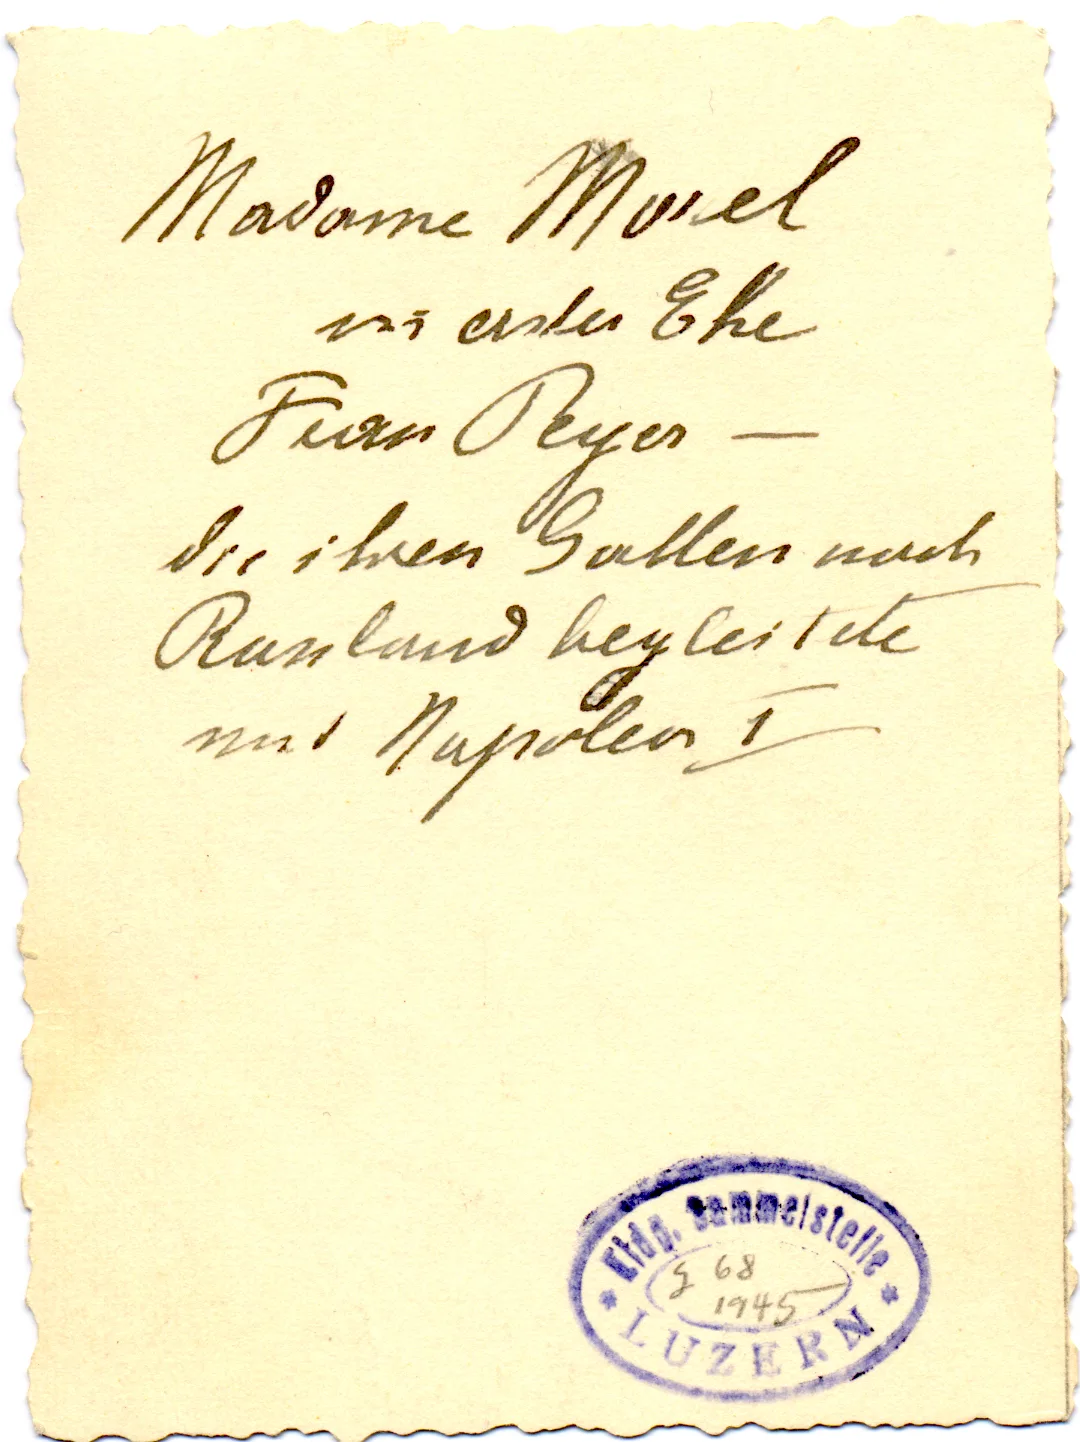 Madame Morel
in erster Ehe
Frau Peyer —
die ihren Gatten nach
Russland begleitete
mit Napoleon I
Kldg. Sammelstelle
68
1945
LUZERN